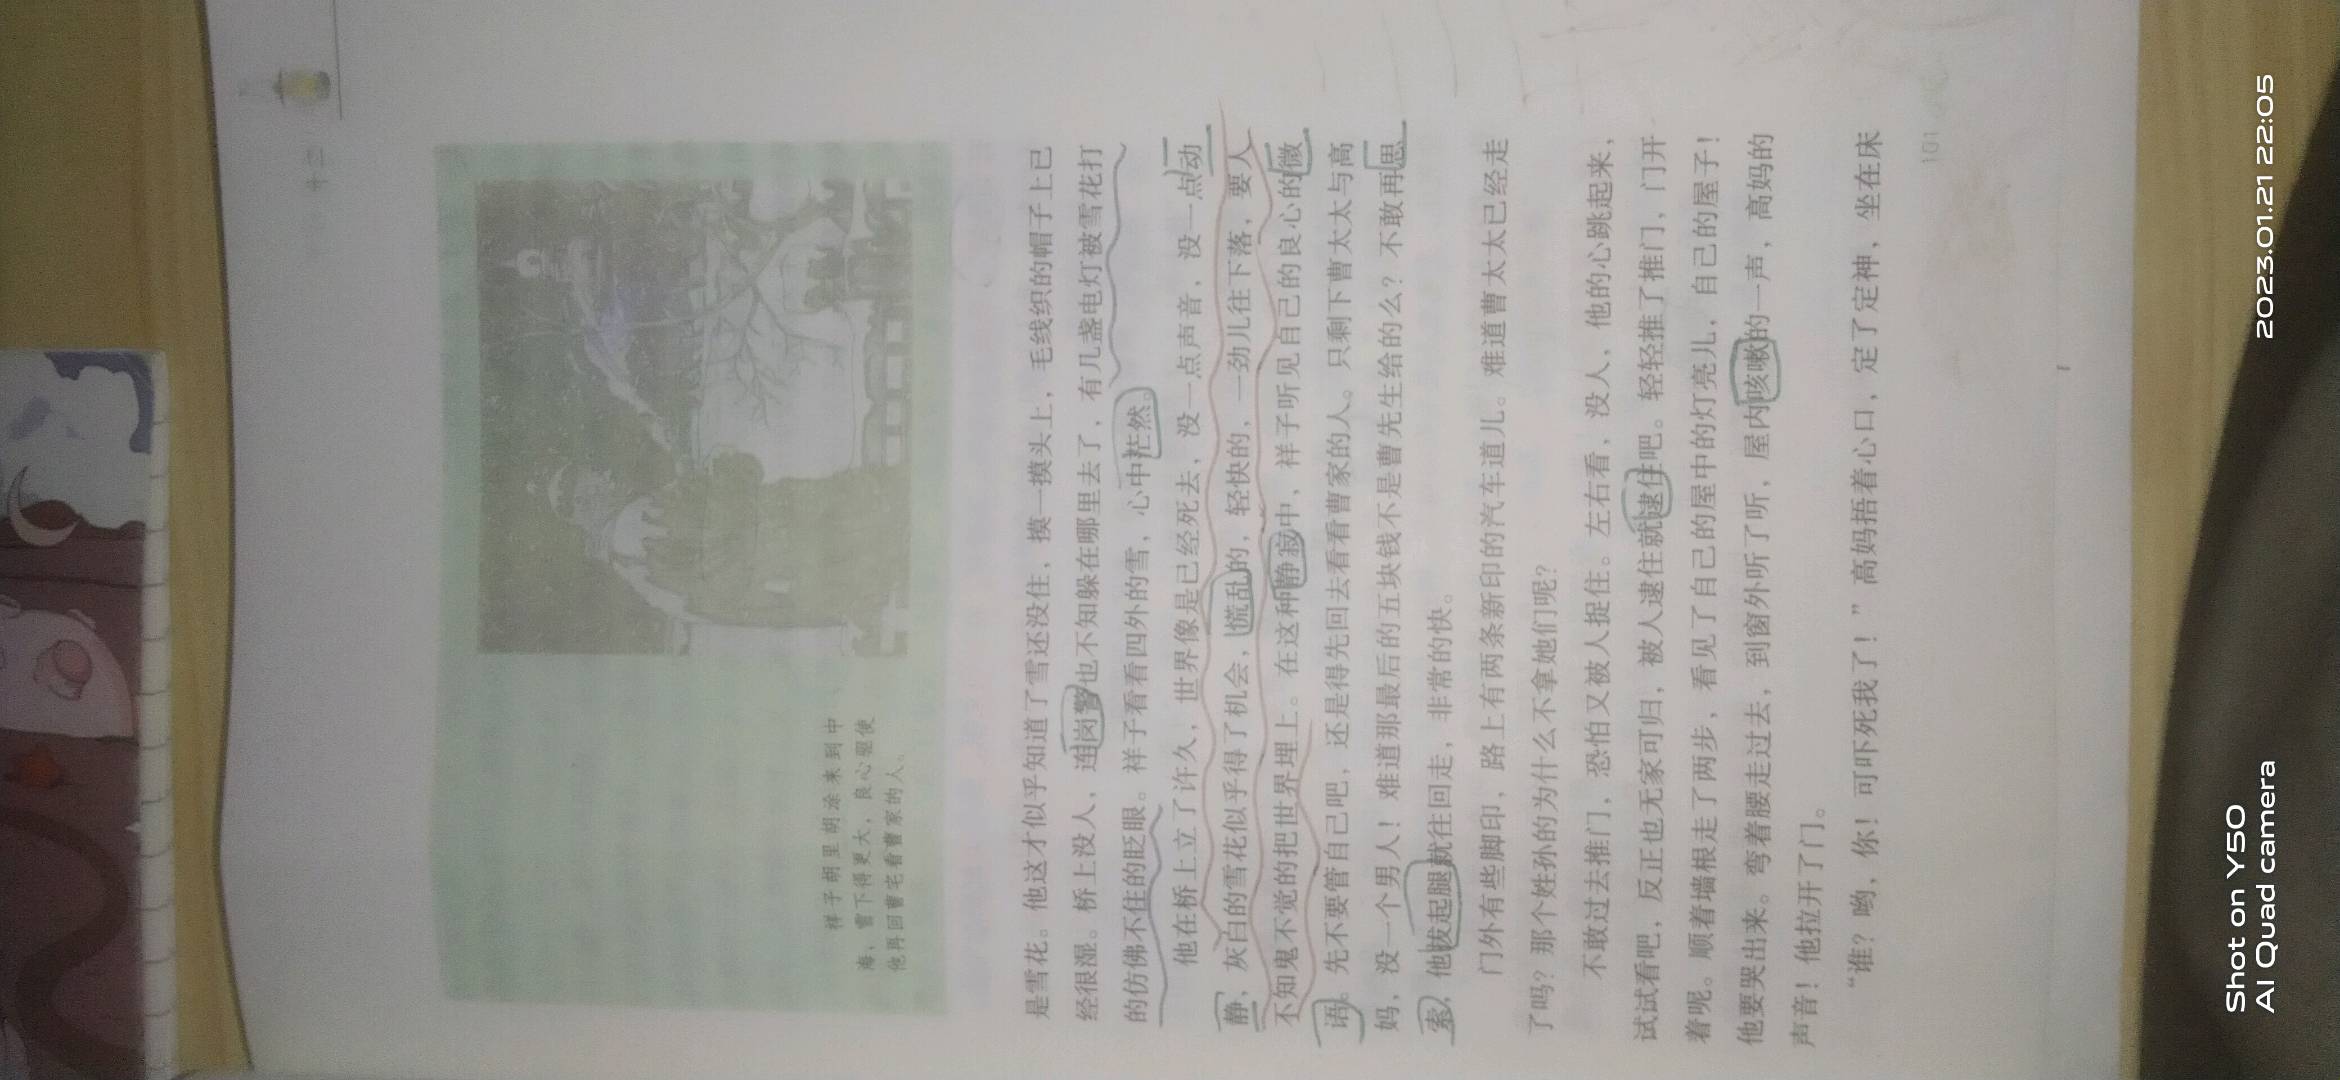 十二
祥子胡里胡涂来到中
海，雪下得更大，良心驱使
他再回曹宅看曹家的人。
是雪花。他这才似乎知道了雪还没住，摸一摸头上，毛线织的帽子上已
经很湿。桥上没人，连岗警也不知躲在哪里去了，有几盏电灯被雪花打
的仿佛不住的眨眼。祥子看看四外的雪，心中茫然。
他在桥上立了许久，世界像是已经死去，没一点声音，没一点动
静，灰白的雪花似乎得了机会，慌乱的，轻快的，一劲儿往下落，要人
不知鬼不觉的把世界埋上。在这种静寂中，祥子听见自己的良心的微
语。先不要管自己吧，还是得先回去看看曹家的人。只剩下曹太太与高
妈，没一个男人！难道那最后的五块钱不是曹先生给的么？不敢再思
索，他拔起腿就往回走，非常的快。
门外有些脚印，路上有两条新印的汽车道儿。难道曹太太已经走
了吗？那个姓孙的为什么不拿她们呢？
不敢过去推门，恐怕又被人捉住。左右看，没人，他的心跳起来，
试试看吧，反正也无家可归，被人逮住就逮住吧。轻轻推了推门，门开
着呢。顺着墙根走了两步，看见了自己的屋中的灯亮儿，自己的屋子！
他要哭出来。弯着腰走过去，到窗外听了听，屋内咳嗽的一声，高妈的
声音！他拉开了门。
“谁？哟，你！可吓死我了！”高妈捂着心口，定了定神，坐在床
101
Shot on Y50
AI Quad camera
2023.01.21 22:05